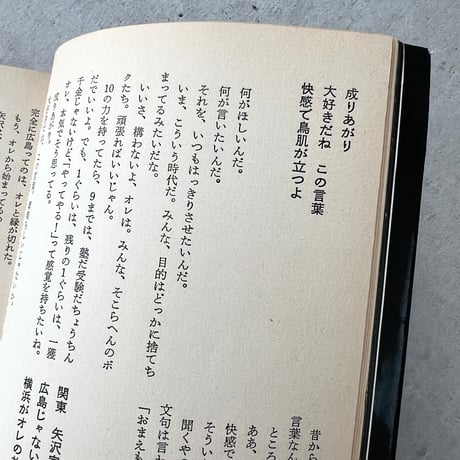 成りあがり
大好きだね この言葉
快感で鳥肌が立つよ
何がほしいんだ。
何が言いたいんだ。
それを、いつもはっきりさせたいんだ。
いま、こういう時代だ。みんな、目的はどっかに捨てち
まってるみたいだな。
いいさ、構わないよ、オレは。みんな、そこらへんのボ
クたち。頑張ればいいじゃん。
10の力を持ってたら、9までは、塾だ受験だちょうちん
だでいいよ。でも、1ぐらいは、残りの1ぐらいは、一獲
千金じゃないけど、「やってやる!」って感覚を持ちたいね。
オレ、本気でそう思ってる。
完全に広島ってのは、オレと縁が切れた。
もう、オレから始まってるの
昔か
言葉なん
ところ
ああ、
快感で
そうい
聞くや
文句は言
「おまえも
関東 矢沢
広島じゃない
横浜がオレの